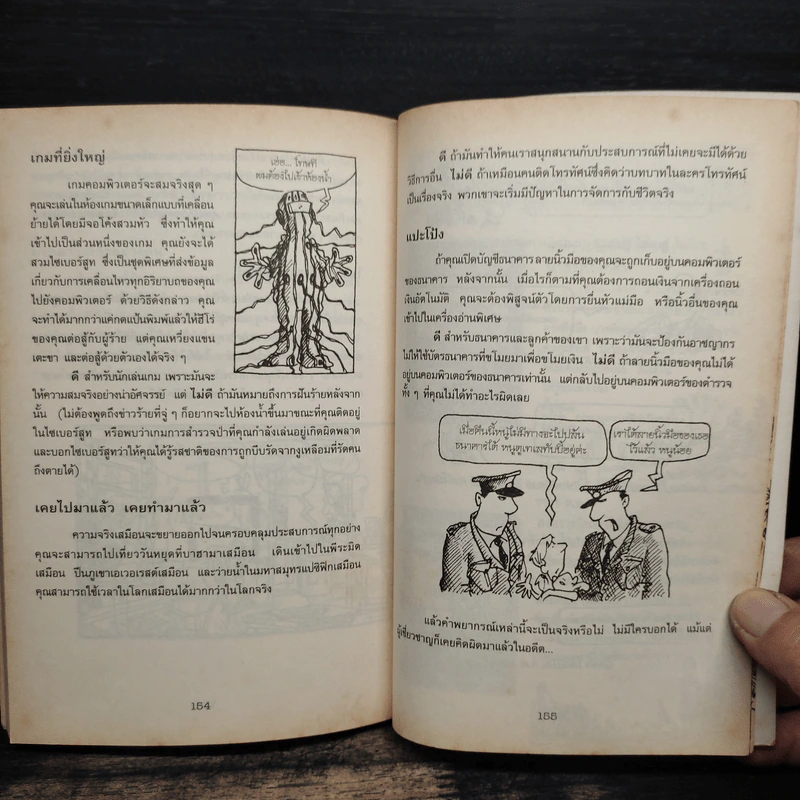 เกมที่ยิ่งใหญ่
เอ่อ... โทษที
ผมต้องไปเข้าห้องน้ำ
เกมคอมพิวเตอร์จะสมจริงสุด ๆ
คุณจะเล่นในห้องเกมขนาดเล็กแบบที่เคลื่อน
ย้ายได้โดยมีจอโค้งสวมหัว ซึ่งทำให้คุณ
เข้าไปเป็นส่วนหนึ่งของเกม คุณยังจะได้
สวมไซเบอร์สูท ซึ่งเป็นชุดพิเศษที่ส่งข้อมูล
เกี่ยวกับการเคลื่อนไหวทุกอิริยาบถของคุณ
ไปยังคอมพิวเตอร์ ด้วยวิธีดังกล่าว คุณ
จะทำได้มากกว่าแค่กดแป้นพิมพ์แล้วให้ฮีโร่
ของคุณต่อสู้กับผู้ร้าย แต่คุณเหวี่ยงแขน
เตะขา และต่อสู้ด้วยตัวเองได้จริง ๆ
ดี สำหรับนักเล่นเกม เพราะมันจะ
ให้ความสมจริงอย่างน่าอัศจรรย์ แต่ ไม่ดี ถ้ามันหมายถึงการฝันร้ายหลังจาก
นั้น (ไม่ต้องพูดถึงข่าวร้ายที่จู่ ๆ ก็อยากจะไปห้องน้ำขึ้นมาขณะที่คุณติดอยู่
ในไซเบอร์สูท หรือพบว่าเกมการสำรวจป่าที่คุณกำลังเล่นอยู่เกิดผิดพลาด
และบอกไซเบอร์สูทว่าให้คุณได้รู้รสชาติของการถูกบีบรัดจากงูเหลือมที่รัดคน
ถึงตายได้)
เคยไปมาแล้ว เคยทำมาแล้ว
ความจริงเสมือนจะขยายออกไปจนครอบคลุมประสบการณ์ทุกอย่าง
คุณจะสามารถไปเที่ยววันหยุดที่บาฮามาเสมือน เดินเข้าไปในพีระมิด
เสมือน ปีนภูเขาเอเวอเรสต์เสมือน และว่ายน้ำในมหาสมุทรแปซิฟิกเสมือน
คุณสามารถใช้เวลาในโลกเสมือนได้มากกว่าในโลกจริง
154
ดี ถ้ามันทำให้คนเราสนุกสนานกับประสบการณ์ที่ไม่เคยจะมีได้ด้วย
วิธีการอื่น ไม่ดี ถ้าเหมือนคนติดโทรทัศน์ซึ่งคิดว่าบทบาทในละครโทรทัศน์
เป็นเรื่องจริง พวกเขาจะเริ่มมีปัญหาในการจัดการกับชีวิตจริง
แปะโป้ง
ถ้าคุณเปิดบัญชีธนาคาร ลายนิ้วมือของคุณจะถูกเก็บอยู่บนคอมพิวเตอร์
ของธนาคาร หลังจากนั้น เมื่อไรก็ตามที่คุณต้องการถอนเงินจากเครื่องถอน
เงินอัตโนมัติ คุณจะต้องพิสูจน์ตัวโดยการยื่นหัวแม่มือ หรือนิ้วอื่นของคุณ
เข้าไปในเครื่องอ่านพิเศษ
ดี สำหรับธนาคารและลูกค้าของเขา เพราะว่ามันจะป้องกันอาชญากร
ไม่ให้ใช้บัตรธนาคารที่ขโมยมาเพื่อขโมยเงิน ไม่ดี ถ้าลายนิ้วมือของคุณไม่ได้
อยู่บนคอมพิวเตอร์ของธนาคารเท่านั้น แต่กลับไปอยู่บนคอมพิวเตอร์ของตำรวจ
ทั้ง ๆ ที่คุณไม่ได้ทำอะไรผิดเลย
เมื่อคืนนี้หนูไม่มีทางจะไปปล้น
ธนาคารได้ หนูดูเทเลทับบี้อยู่ค่ะ
เราได้ลายนิ้วมือของเธอ
ไว้แล้ว หนูน้อย
แล้วคำพยากรณ์เหล่านี้จะเป็นจริงหรือไม่ ไม่มีใครบอกได้ แม้แต่
ผู้เชี่ยวชาญก็เคยคิดผิดมาแล้วในอดีต...
155